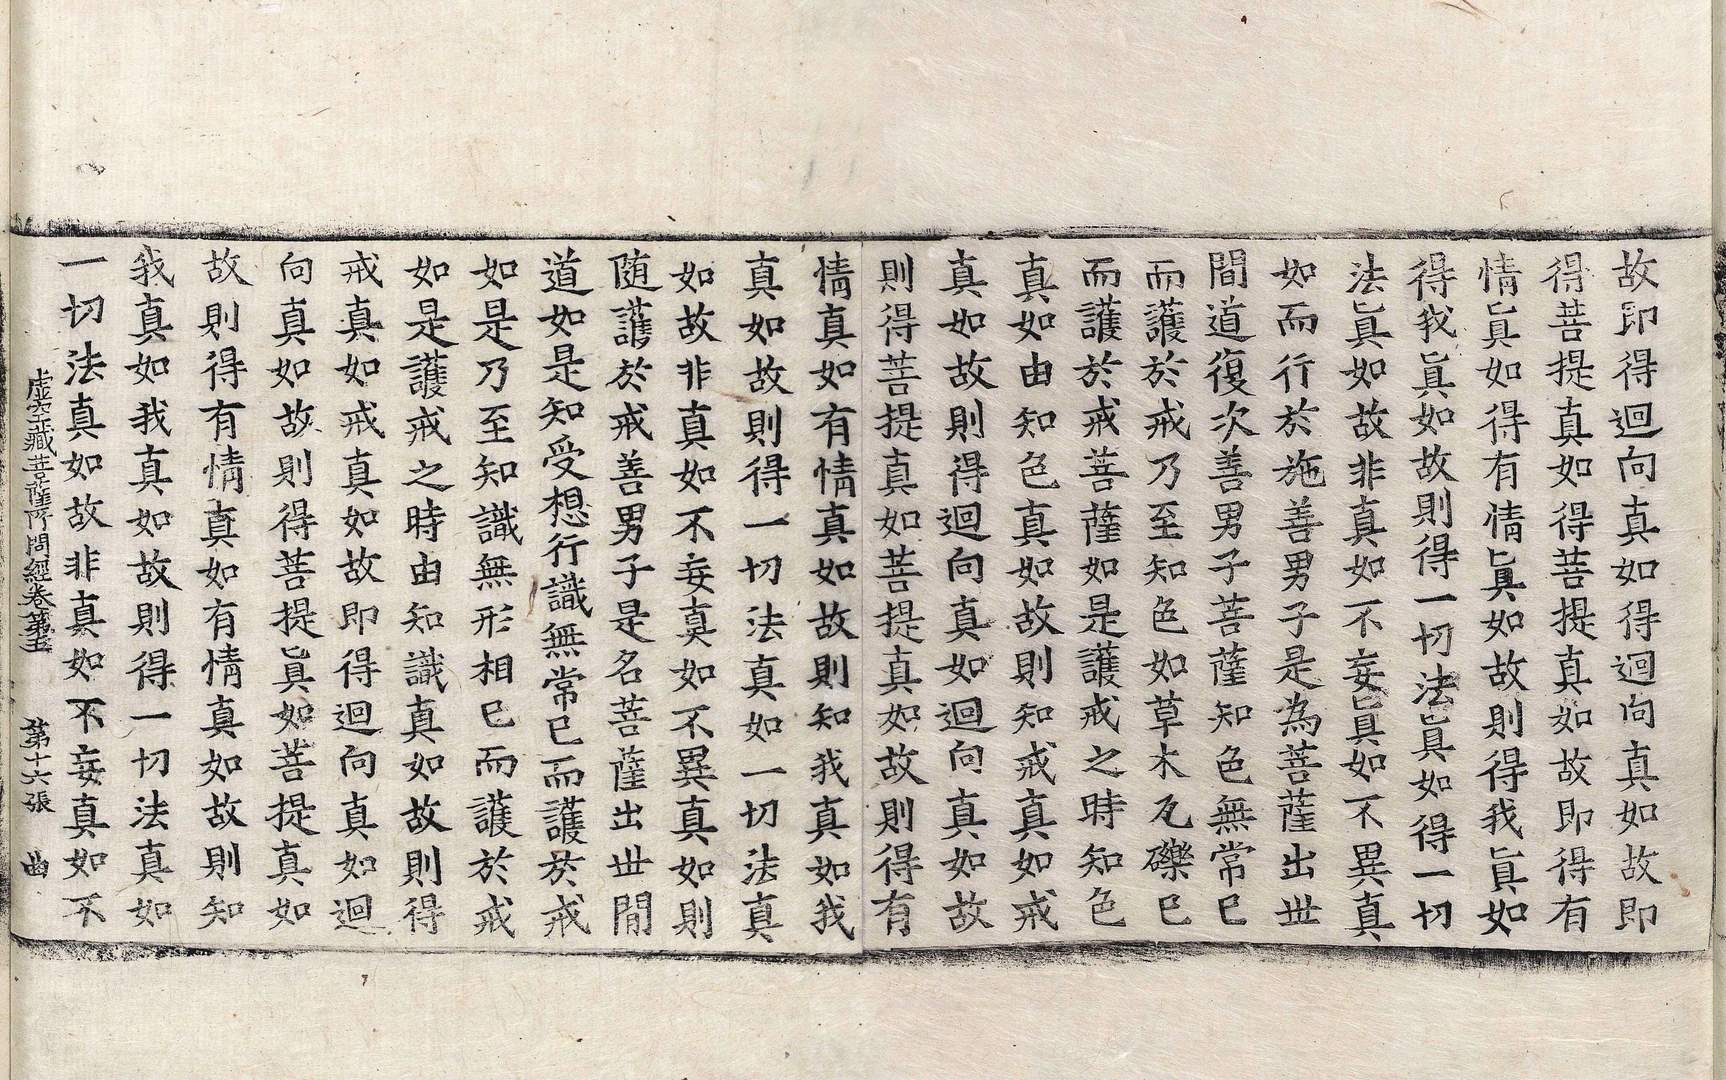 故即得迴向真如得迴向真如故即
得菩提真如得菩提真如故即得有
情真如得有情真如故則得我真如
得我真如故則得一切法真如得一切
法真如故非真如不妄真如不異真
如而行於施善男子是為菩薩出世
間道復次善男子菩薩知色無常已
而護於戒乃至知色如草木瓦礫已
而護於戒菩薩如是護戒之時知色
真如由知色真如故則知戒真如戒
真如故則得迴向真如迴向真如故
則得菩提真如菩提真如故則得有
情真如有情真如故則知我真如我
真如故則得一切法真如一切法真
如故非真如不妄真如不異真如則
随護於戒善男子是名菩薩出世間
道如是知受想行識無常已而護於戒
如是乃至知識無形相已而護於戒
如是護戒之時由知識真如故則得
戒真如戒真如故即得迴向真如迴
向真如故則得菩提真如菩提真如
故則得有情真如有情真如故則知
我真如我真如故則得一切法真如
一切法真如故非真如不妄真如不
虛空藏菩薩所問經卷第五 第十六張 曲